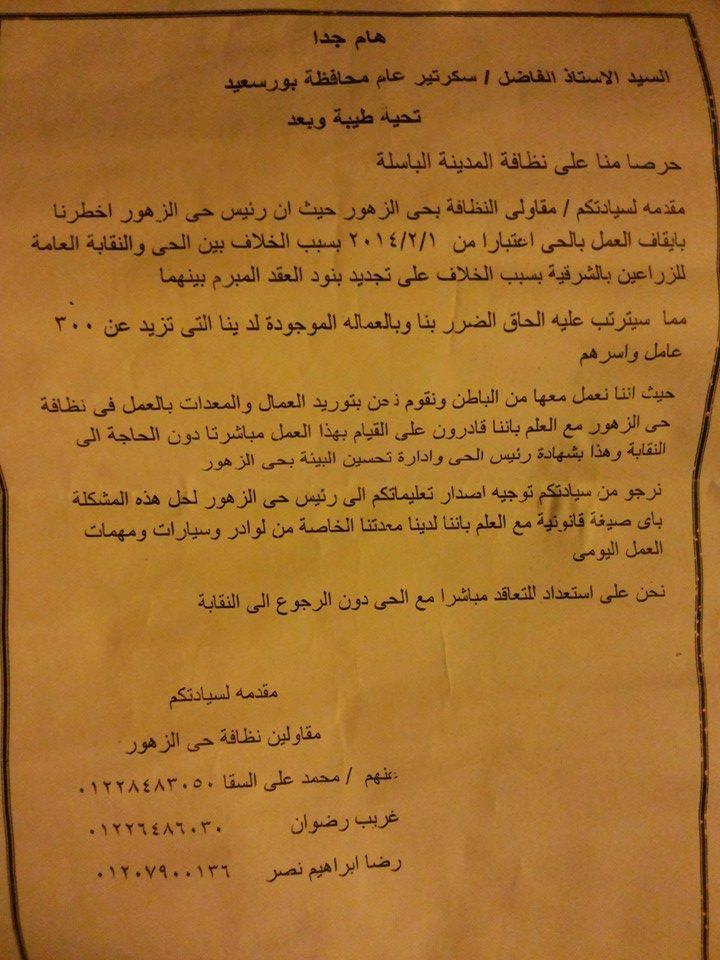 هام جدا
السيد الاستاذ الفاضل / سكرتير عام محافظة بورسعيد
تحيه طيبة وبعد
حرصا منا على نظافة المدينة الباسلة
مقدمه لسيادتكم / مقاولى النظافة بحى الزهور حيث ان رئيس حى الزهور اخطرنا
بايقاف العمل بالحى اعتبارا من ٢٠١٤/٢/١ بسبب الخلاف بين الحى والنقابة العامة
للزراعين بالشرقية بسبب الخلاف على تجديد بنود العقد المبرم بينهما
مما سيترتب عليه الحاق الضرر بنا وبالعماله الموجودة لدينا التى تزيد عن ٣٠٠
عامل واسرهم
حيث اننا نعمل معها من الباطن ونقوم نحن بتوريد العمال والمعدات بالعمل فى نظافة
حى الزهور مع العلم باننا قادرون على القيام بهذا العمل مباشرتا دون الحاجة الى
النقابة وهذا بشهادة رئيس الحى وادارة تحسين البيئة بحى الزهور
نرجو من سيادتكم توجيه اصدار تعليماتكم الى رئيس حى الزهور لحل هذه المشكلة
باى صيغة قانونية مع العلم باننا لدينا معدتنا الخاصة من لوادر وسيارات ومهمات
العمل اليومى
نحن على استعداد للتعاقد مباشرا مع الحى دون الرجوع الى النقابة
مقدمه لسيادتكم
مقاولين نظافة حى الزهور
عنهم / محمد على السقا ٠١٢٢٨٤٨٣٠٥٠
غريب رضوان ٠١٢٢٦٤٨٦٠٣٠
رضا ابراهيم نصر ٠١٢٠٧٩٠٠١٣٦